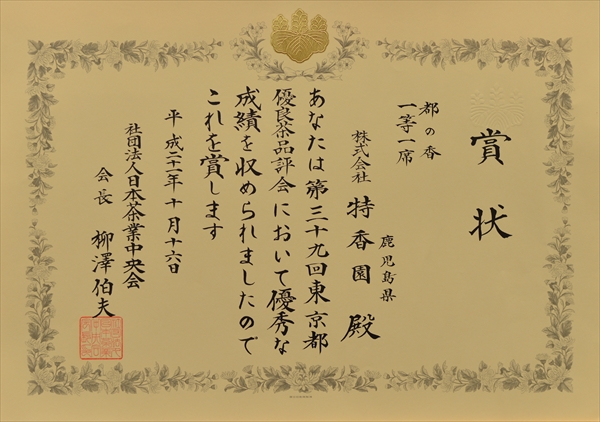 賞状
都の香
一等一席
鹿児島県
株式会社 特香園 殿
あなたは第三十九回東京都
優良茶品評会において優秀な
成績を収められましたので
これを賞します
平成二十一年十月十六日
社団法人日本茶業中央会
会長 柳澤伯夫